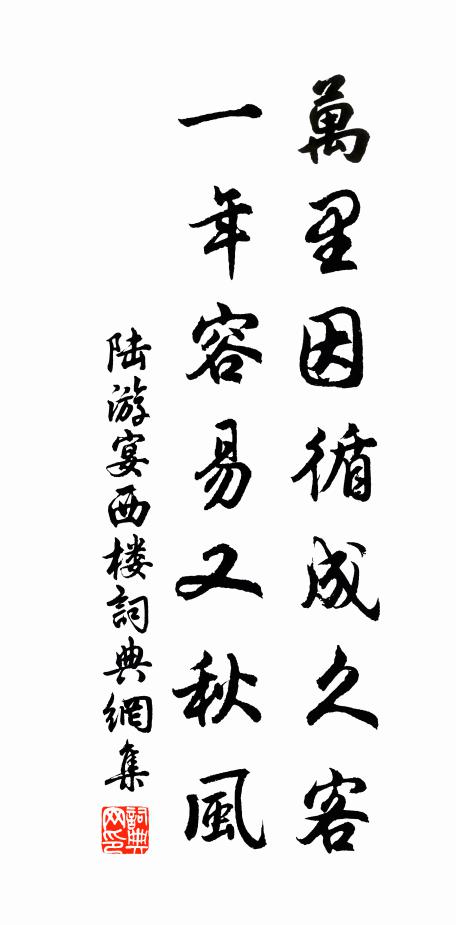 萬里因循成久客
一年容易又秋風
陆游宴西楼詞典網集
詞典
网印